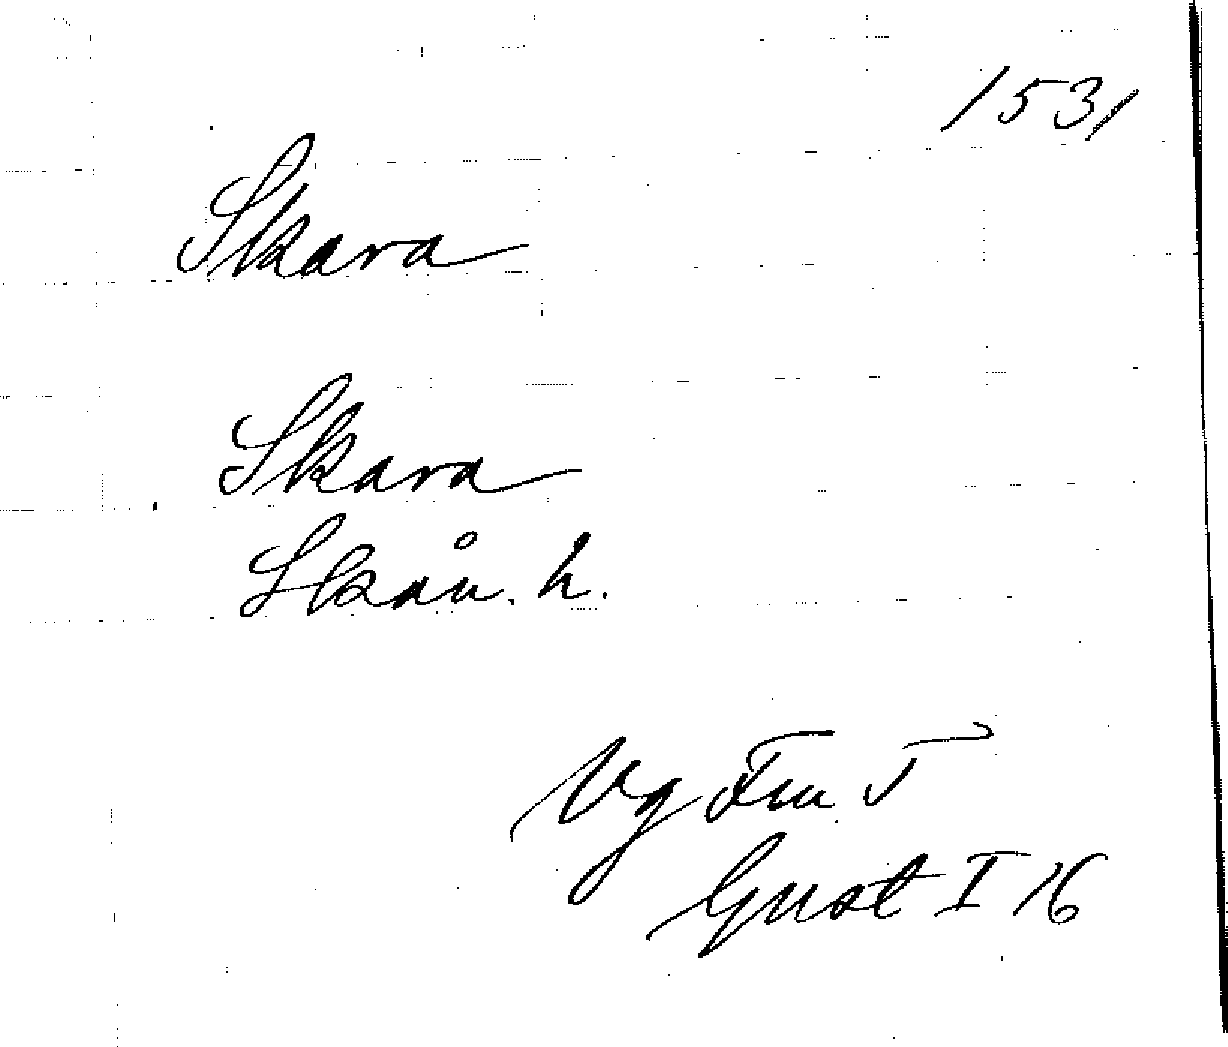 1531
Skara
Skara
Skån. h.
Vg Fru T
Gust I 16